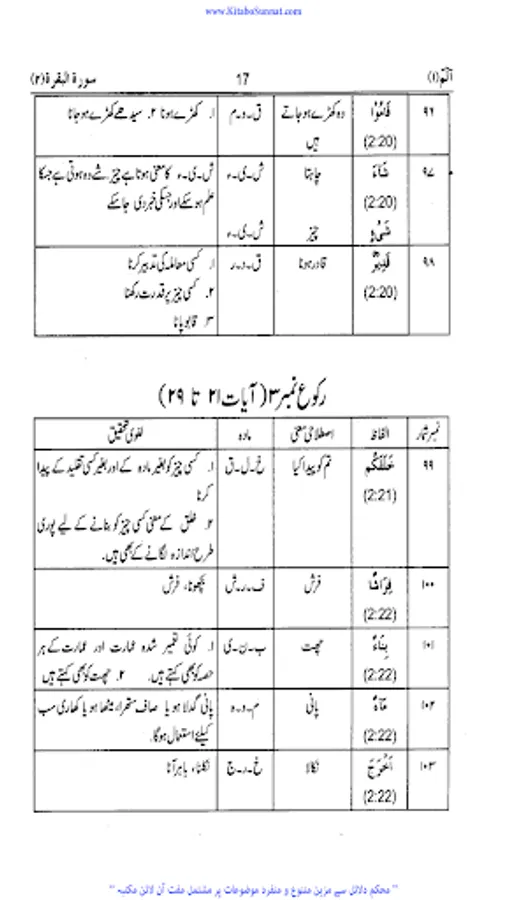 www.KitaboSunnat.com
الٓمّ (۱) 17 سورة البقرة (۲)
۹۶ قَامُوْا وہ کھڑے ہو جاتے ق۔و۔م ۱. کھڑے ہونا ۲. سیدھے کھڑے ہو جانا
(2:20) ہیں
۹۷ شَآءَ چاہتا ش۔ی۔ء ش۔ی۔ء کا معنی ہونا ہے چیز شے وہ ہوتی ہے جسکا
(2:20) علم ہو سکے اور جسکی خبر دی جا سکے
شَیْءٍ چیز ش۔ی۔ء
۹۸ قَدِیْرٌ قادر ہونا ق۔د۔ر ۱. کسی معاملہ کی تدبیر کرنا
(2:20) ۲. کسی چیز پر قدرت رکھنا
۳. قابو پانا
رکوع نمبر ۳ (آیات ۲۱ تا ۲۹)
نمبر شمار الفاظ اصطلاحی معنی مادہ لغوی تحقیق
۹۹ خَلَقَکُمْ تم کو پیدا کیا خ۔ل۔ق ۱. کسی چیز کو بغیر مادہ کے اور بغیر کسی تقلید کے پیدا
(2:21) کرنا
۲. خلق کے معنی کسی چیز کو بنانے کے لیے پوری
طرح اندازہ لگانے کے بھی ہیں۔
۱۰۰ فِرَاشًا فرش ف۔ر۔ش بچھونا، فرش
(2:22)
۱۰۱ بِنَآءً چھت ب۔ن۔ی ۱. کوئی تعمیر شدہ عمارت اور عمارت کے ہر
(2:22) حصہ کو بھی کہتے ہیں۔ ۲. چھت کو بھی کہتے ہیں
۱۰۲ مَآءً پانی م۔و۔ہ پانی گدلا ہو یا صاف ستھرا، میٹھا ہو یا کھاری سب
(2:22) کیلئے استعمال ہوگا۔
۱۰۳ اَخْرَجَ نکالا خ۔ر۔ج نکلنا، باہر آنا
(2:22)
" محکم دلائل سے مزین متنوع و منفرد موضوعات پر مشتمل مفت آن لائن مکتبہ "